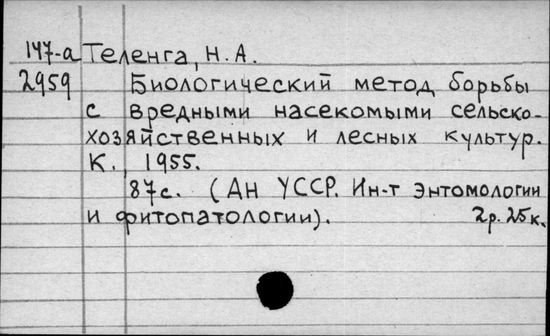 147-а Теленга, Н. А.
2959 Биологический метод борьбы
с вредными насекомыми сельско-
хозяйственных и лесных культур.
К., 1955.
87с. (АН УССР. Ин-т Энтомологии
и фитопатологии). 2р. 25к.